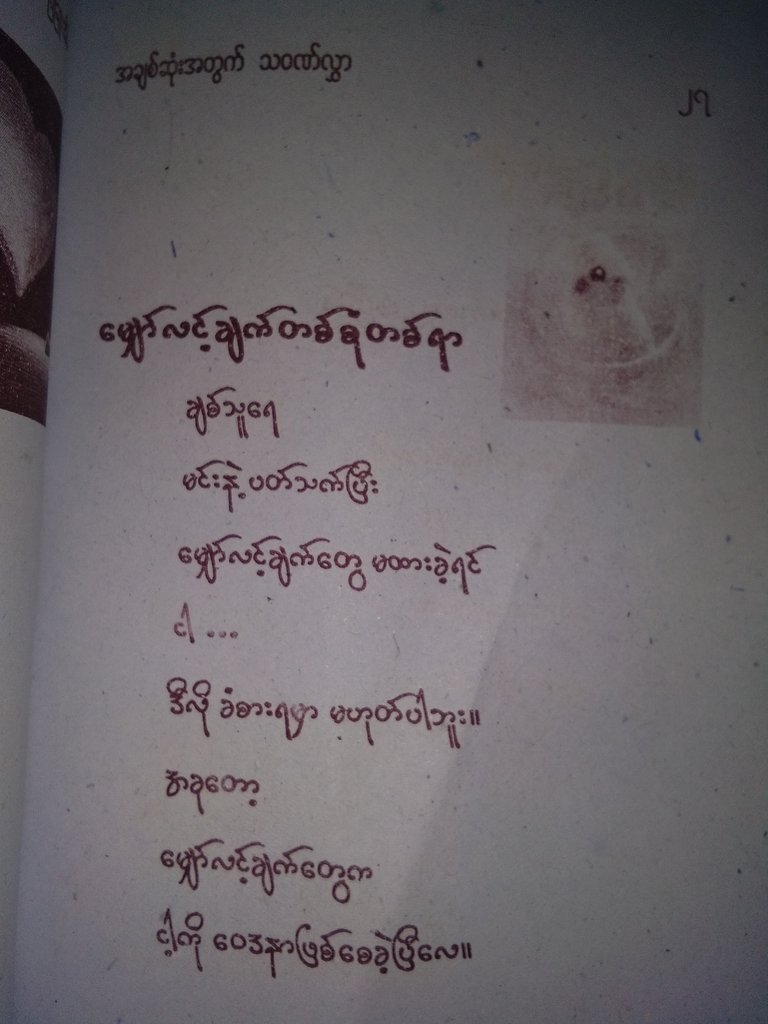 အချစ်ဆုံးအတွက် သဝဏ်လွှာ
၂၇
မျှော်လင့်ချက်တစ်ခုံတစ်ရာ
ချစ်သူရေ
မင်းနဲ့ ပတ်သက်ပြီး
မျှော်လင့်ချက်တွေ မထားခဲ့ရင်
ငါ ...
ဒီလို ခံစားရမှာ မဟုတ်ပါဘူး။
အခုတော့
မျှော်လင့်ချက်တွေက
ငါ့ကို ဝေဒနာဖြစ်စေခဲ့ပြီလေ။